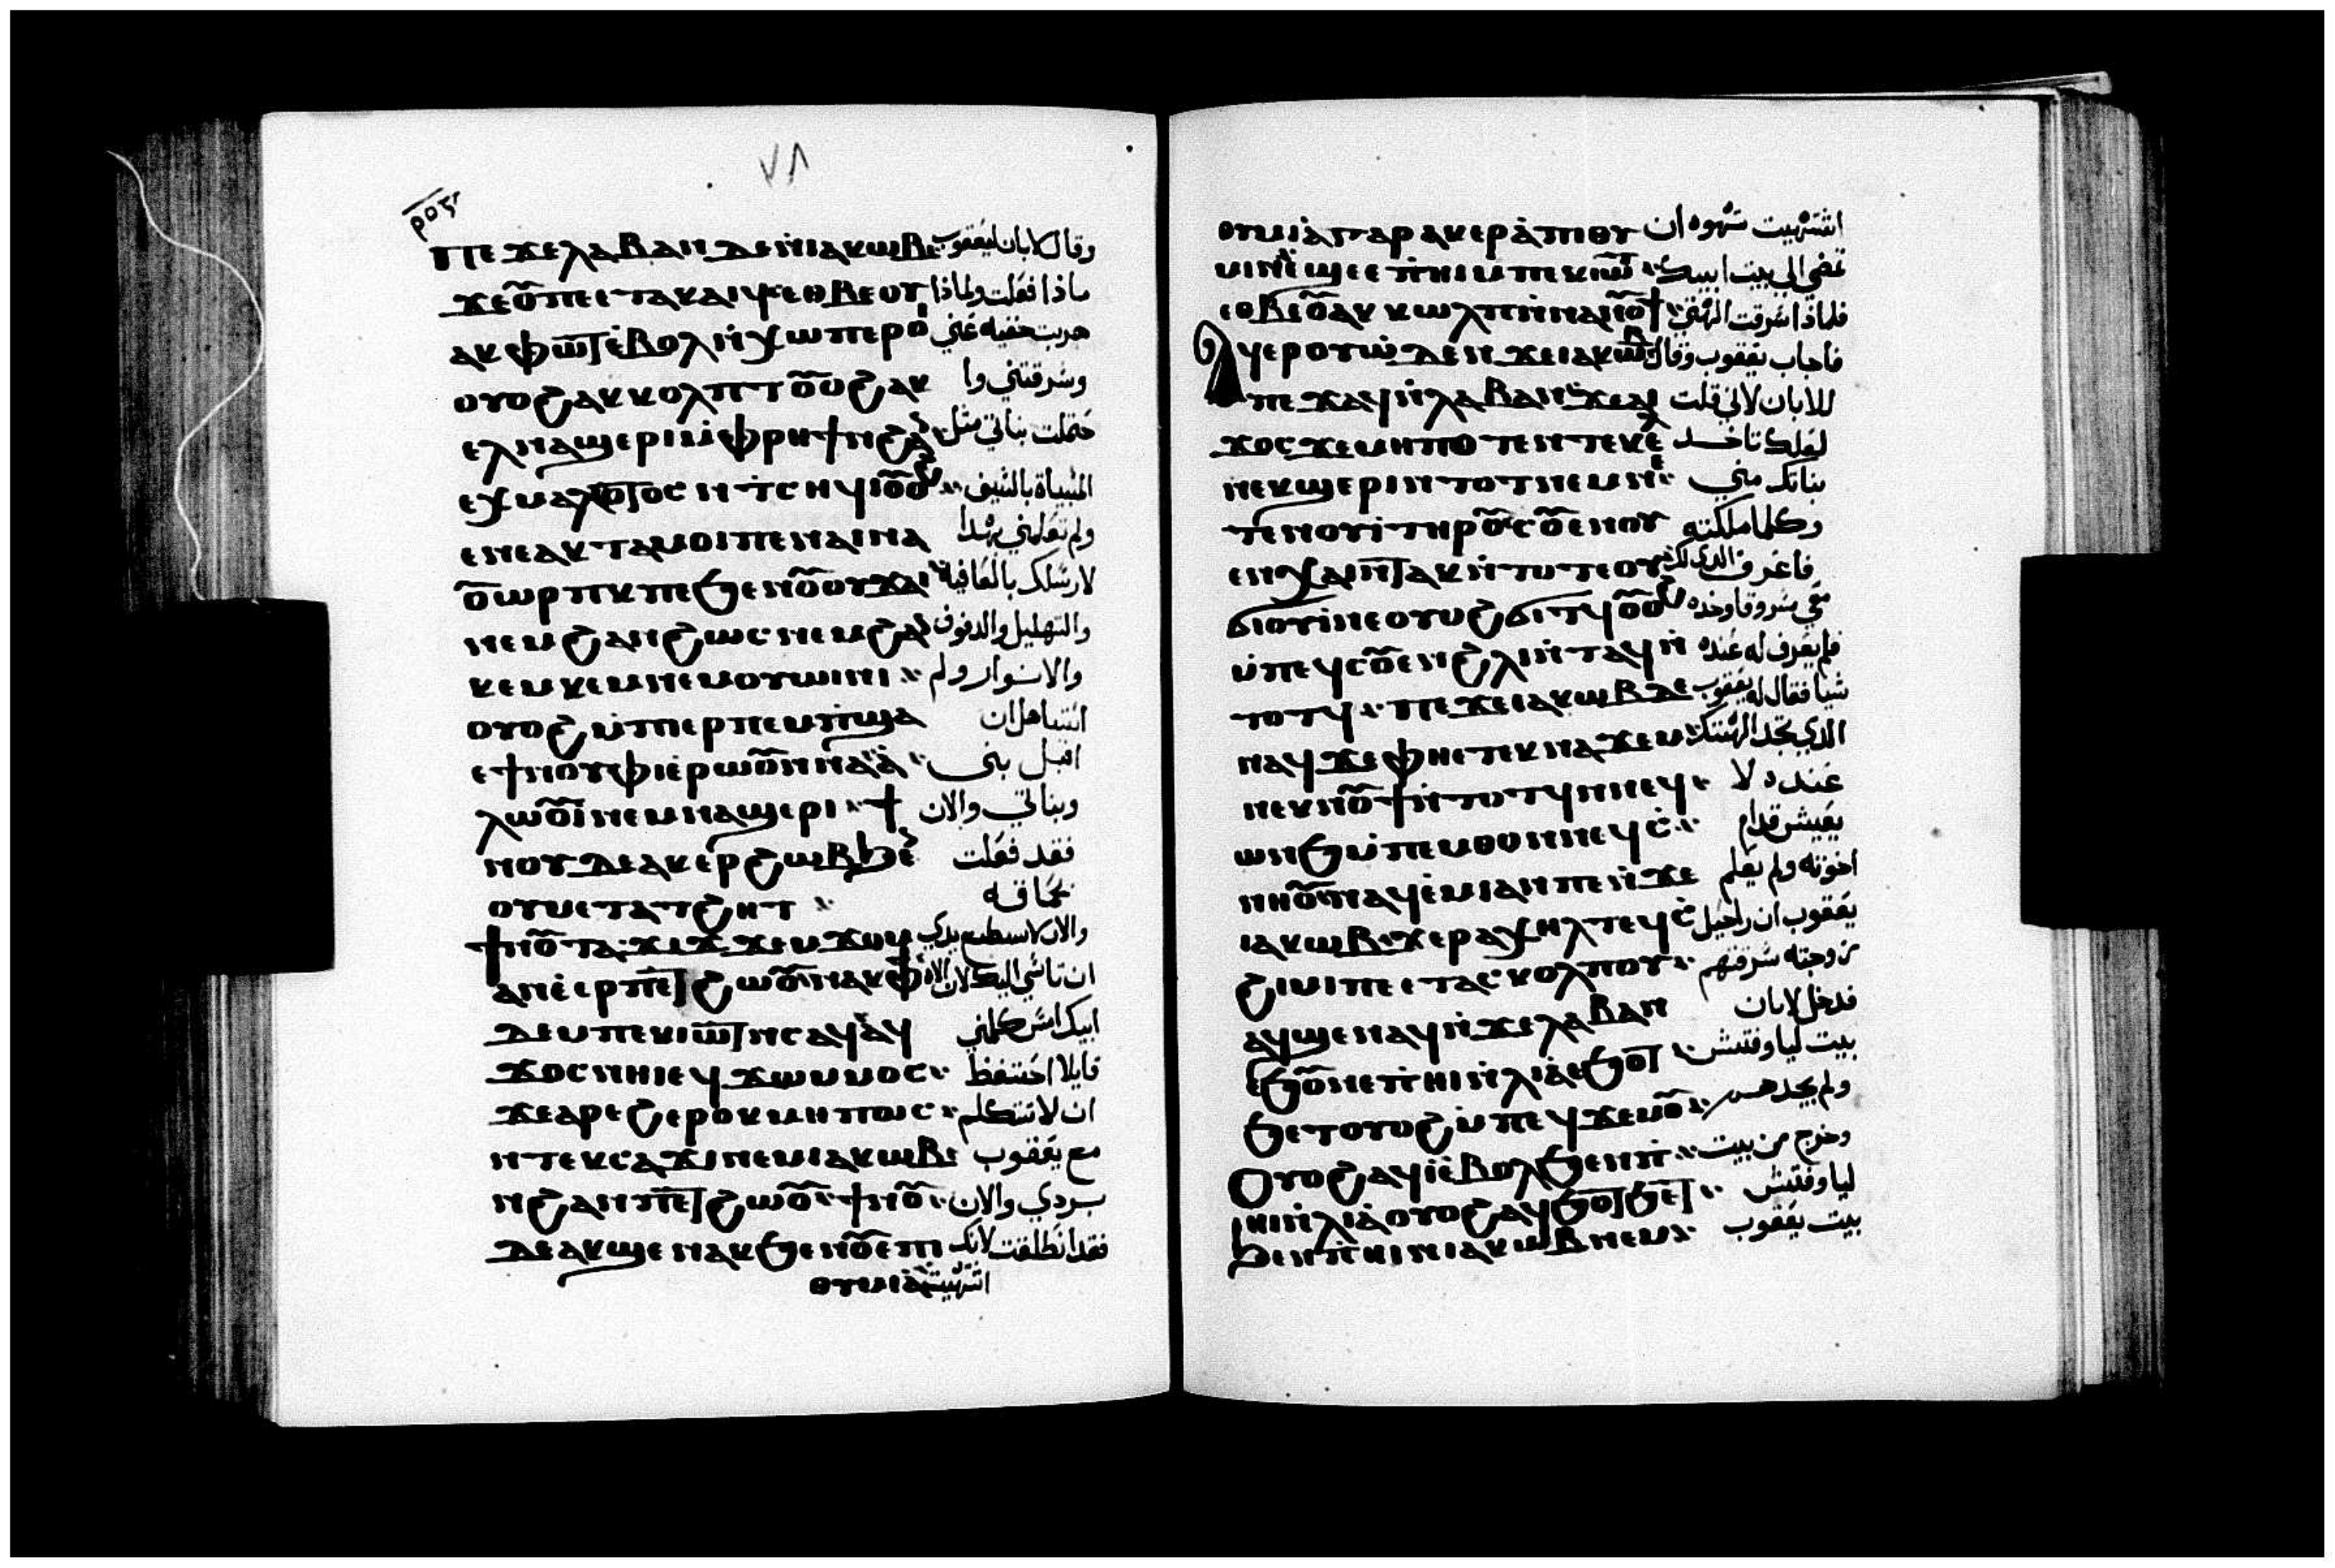 ٧٨
ⲡⲉϫⲉⲗⲁⲃⲁⲛⲇⲉⲛ̀ⲓⲁⲕⲱⲃⲉ وقال لابان ليعقوب
ϫⲉⲟ̅ⲡⲉⲉⲧⲁⲕⲁⲓϥⲉⲑⲃⲉⲟⲩ ماذا فعلت ولماذا
ⲁⲕⲫⲱ̅ⲧ̅ⲉ̀ⲃⲟⲗⲛ̀ⲭⲱⲡⲉⲣⲟ̀ⲓ هربت خفيه عني
ⲟⲩⲟϩⲁⲕⲕⲟⲗⲡⲧⲟ̅ⲟϩⲁⲕ وسرقتني وا
ⲉⲗⲛⲁϣⲉⲣⲓⲙ̀ⲫⲣⲏϯⲛϩⲁ حتملت بناتي مثل
ⲉⲭⲙⲁⲗⲱ̅ⲧⲟⲥⲛⲧ̀ⲥⲏϥⲓⲟ̅ⲟϩ المسباة بالسيف
ⲉⲛⲉⲁⲕⲧⲁⲙⲟⲓⲡⲉⲛⲁⲓⲛⲁ ولم تعلمني بهدا
ⲟ̅ⲱⲣⲡⲕⲡⲉϧⲉⲛⲟ̅ⲟⲩϫⲁⲓ لارسلك بالعافية
ⲛⲉⲙϩⲁⲛϩⲱⲥⲛⲉⲙϩⲁ والتهليل والدفوف
ⲕⲉⲙⲕⲉⲙⲛⲉⲙⲟⲩⲱⲓⲛⲓ والاسوار ولم
ⲟⲩⲟϩⲙ̀ⲡⲉⲣⲡⲉⲙⲡ̀ϣⲁ استاهل ان
ⲉϯⲛⲟⲩⲫⲓⲉ̀ⲣⲱⲟ̅ⲛⲛⲁⲁ̀ اقبل بني
ⲗⲱⲟ̅ⲓⲛⲉⲙⲛⲁϣⲉⲣⲓϯ وبناتي والان
ⲛⲟⲩⲇⲉⲁⲕⲉⲣϩⲱⲃϧⲉ فقد فعلت
ⲟⲩⲙⲉⲧⲁⲧϩⲏⲧ بحماقه
ϯⲛⲟ̅ⲧⲁϫⲓϫϫⲉⲙϫⲟⲙ والان لاستطيع يدي
ⲁⲛⲉ̀ⲉⲣⲡⲉ̅ⲧϩⲱⲟ̅ⲛⲁⲕⲫϯ ان تاسي اليك لان الاه
ⲇⲉⲙⲡⲉⲕⲓⲱ̅ⲧⲛⲥⲁϥⲁϥ ابيك امس كلمني
ϫⲟⲥⲛⲏⲓⲉϥϫⲱⲙⲙⲟⲥ قايلا احتفظ
ϫⲉⲁⲣⲉϩⲉⲣⲟⲕⲙⲏⲡⲟⲥ ان لا تتكلم
ⲛⲧⲉⲕⲥⲁϫⲓⲛⲉⲙⲓⲁⲕⲱⲃⲉ مع يعقوب
ⲛϩⲁⲛⲡⲉ̅ⲧϩⲱⲟ̅ϯⲛⲟ̅ بردي والان
ⲇⲉⲁⲕϣⲉⲛⲁⲕϧⲉⲛⲟ̅ⲉⲡⲓ فقد انطلقت لانك
ⲑⲩⲙⲓⲁ̀ اشتهيت
ⲑⲩⲙⲓⲁ̀ⲅⲁⲣⲁⲕⲉⲣⲁ̀ⲡⲓⲑⲩ اشتهيت شهوه ان
ⲙⲓⲛ̀ϣⲉⲉⲡ̀ⲏⲓⲙⲡⲉⲕⲓⲱ̅ⲧ تمضي الي بيت ابيك
ⲉⲑⲃⲉⲟ̅ⲁⲕⲕⲱⲗⲡⲛ̀ⲛⲁⲛⲟ̅ϯ فلماذا سرقت الهتي
ⲁϥⲉⲣⲟⲩⲱ̀ⲇⲉⲛϫⲉⲓⲁⲕⲱⲃ فاجاب يعقوب وقال
ⲡⲉϫⲁϥⲛ̀ⲗⲁⲃⲁⲛϫⲉⲁⲓ للابان لاني قلت
ϫⲟⲥϫⲉⲙⲏⲡⲟⲧⲉⲛⲧⲉⲕⲉ̀ⲗ لعلك تاخد
ⲛⲉⲕϣⲉⲣⲓⲛⲧⲟⲧⲛⲉⲙⲛⲉ بناتك مني
ⲧⲉⲛⲟⲩⲓ̀ⲧⲏⲣⲟ̅ⲥⲟ̅ⲉⲛⲟⲩ وكلما ملكته
ⲉⲛⲭⲁⲓⲛ̅ⲧⲁⲕⲛ̀ⲧⲟⲧⲉⲟⲩ فاعرف الدي لك
ϭⲓⲟⲩⲓ̀ⲛⲉⲟⲩⲟϩϭⲓⲧϥⲟ̅ⲟϩ معي مسروقا وخده
ⲙ̀ⲡⲉϥⲥⲟ̅ⲉⲛϩⲗⲓⲛ̀ⲧⲁϥⲛ̀ فلم يعرف له عنده
ⲧⲟⲧϥⲡⲉϫⲉⲓⲁⲕⲱⲃⲇⲉ شيا فقال له يعقوب
ⲛⲁϥϫⲉⲫⲏⲉⲧⲉⲕⲛⲁϫⲉⲙ الدي تجد الهتك
ⲛⲉⲕⲛⲟ̅ϯⲛ̀ⲧⲟⲧϥⲛⲛⲉϥ عنده لا
ⲱⲛϧⲙ̀ⲡⲉⲙⲑⲟⲛⲛⲉϥⲥ̀ يعيش قدام
ⲛⲏⲟ̅ⲛⲁϥⲉ̀ⲙⲓⲁⲛⲡⲉⲛ̀ϫⲉ اخوته ولم يعلم
ⲓⲁⲕⲱⲃϫⲉⲣⲁⲭⲏⲗⲧⲉϥⲥ̀ يعقوب ان راحيل
ϩⲓⲙⲓⲡⲉⲉⲧⲁⲥⲕⲟⲗⲡⲟⲩ زوجته سرقتهم
ⲁϥϣⲉⲛⲁϥⲛ̀ϫⲉⲗⲁⲃⲁⲛ فدخل لابان
ⲉϧⲟ̅ⲛⲉⲡ̀ⲏⲓⲛ̀ⲗⲓⲁ̀ⲉϧⲟ̅ⲧ بيت ليا وفتش
ϧⲉⲧⲟⲩⲟϩⲙ̀ⲡⲉϥϫⲉⲙⲟ̅ ولم يجدهم
ⲟⲩⲟϩⲁϥⲓ̀ⲉ̀ⲃⲟⲗϧⲉⲛⲡ̀ وخرج من بيت
ⲏⲓⲛ̀ⲗⲓⲁ̀ⲟⲩⲟϩⲁϥϧⲟ̅ⲧϧⲉ̅ⲧ ليا وفتش
ϧⲉⲛⲡ̀ⲏⲓⲛⲓⲁⲕⲱⲃⲛⲉⲙ بيت يعقوب